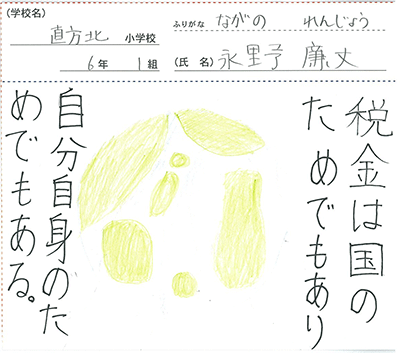 (学校名)
直方北 小学校
6年 1組
ふりがな ながの れんじょう
(氏 名) 永野 廉丈
税金は国の
ためでもあり
自分自身のた
めでもある。